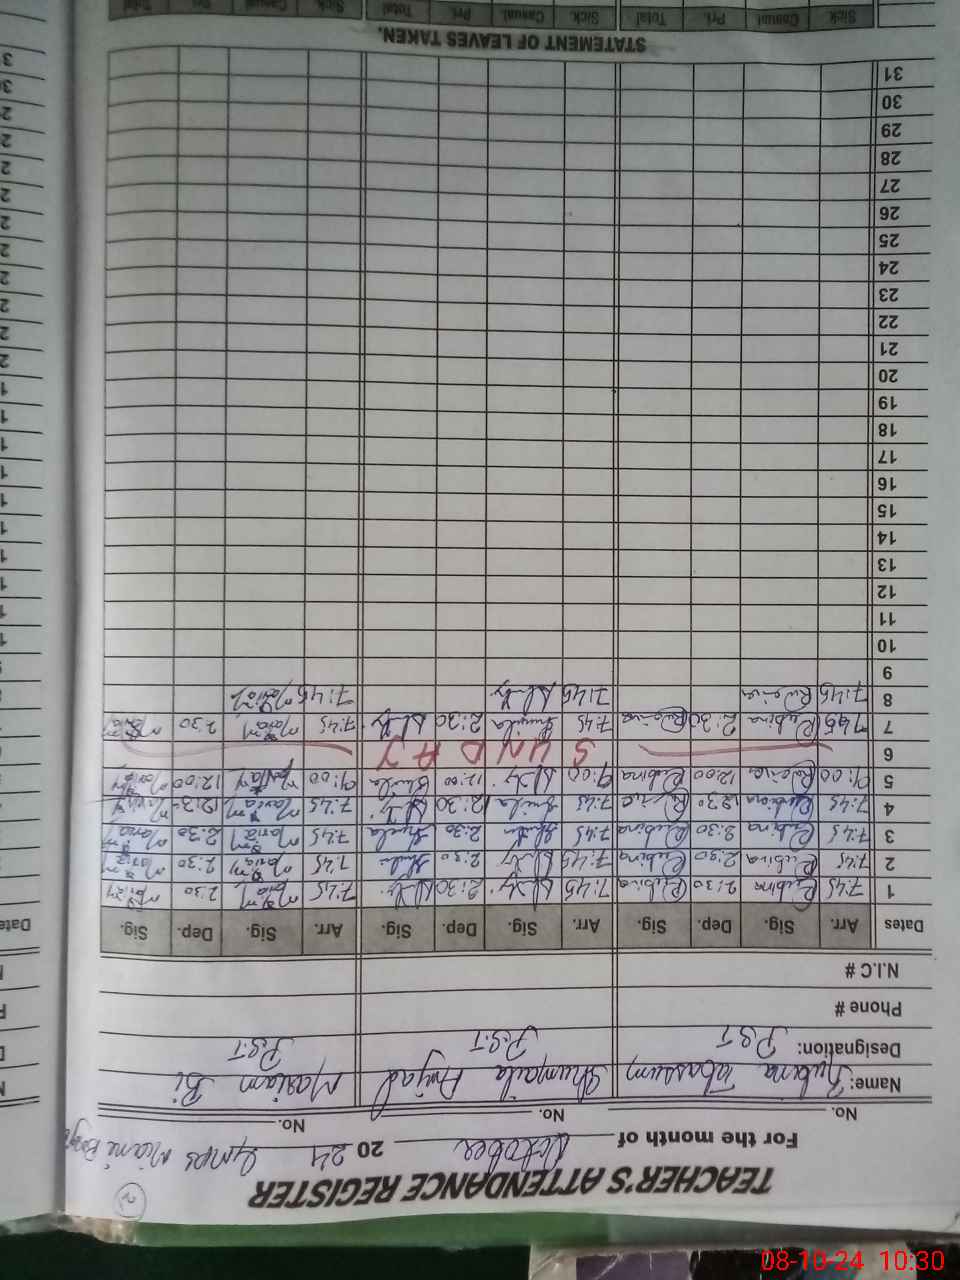 TEACHER'S ATTENDANCE REGISTER
For the month of October 20 24 GMPS Miani
No. No. No.
Name: Rubina Tabassum Shumaila Amjad Mariam Bi
Designation: P.S.T P.S.T P.S.T
Phone #
N.I.C #
Dates Arr. Sig. Dep. Sig. Arr. Sig. Dep. Sig. Arr. Sig. Dep. Sig.
1 7:45 Rubina 2:30 Rubina 7:45 2:30 7:45 Maria 2:30 Maria
2 7:45 Rubina 2:30 Rubina 7:45 2:30 7:45 Maria 2:30 Maria
3 7:45 Rubina 2:30 Rubina 7:45 2:30 7:45 Maria 2:30 Maria
4 7:45 Rubina 12:30 7:45 12:30 7:45 Maria 12:30 Maria
5 9:00 Rubina 12:00 Rubina 9:00 12:00 9:00 12:00
6 SUNDAY
7 7:45 Rubina 2:30 Rubina 7:45 2:30 7:45 Maria 2:30 Maria
8 7:45 Rubina 7:45 7:45 Maria
9
10
11
12
13
14
15
16
17
18
19
20
21
22
23
24
25
26
27
28
29
30
31
STATEMENT OF LEAVES TAKEN.
Sick Casual Pri. Total Sick. Casual Pri. Total Sick Casual Pri. Total
Date
08-10-24 10:30